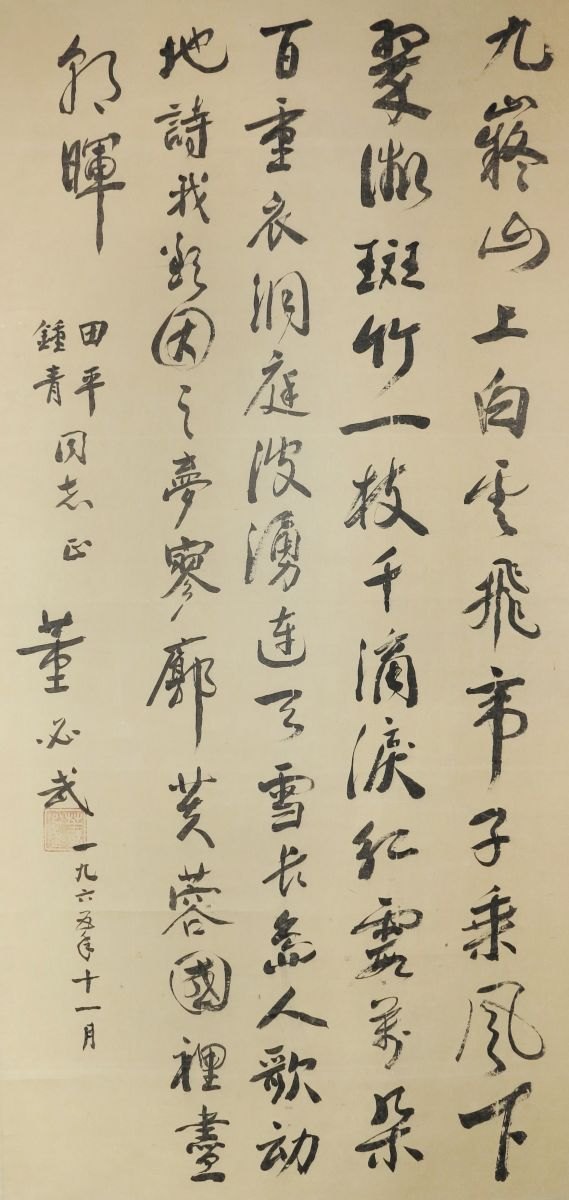 九嶷山上白云飛帝子乘風下
翠微斑竹一枝千滴淚紅霞萬朵
百重衣洞庭波湧連天雪長島人歌動
地詩我欲因之夢寥廓芙蓉國裡盡
朝暉
田平
鍾青
同志正
董必武
一九六五年十一月